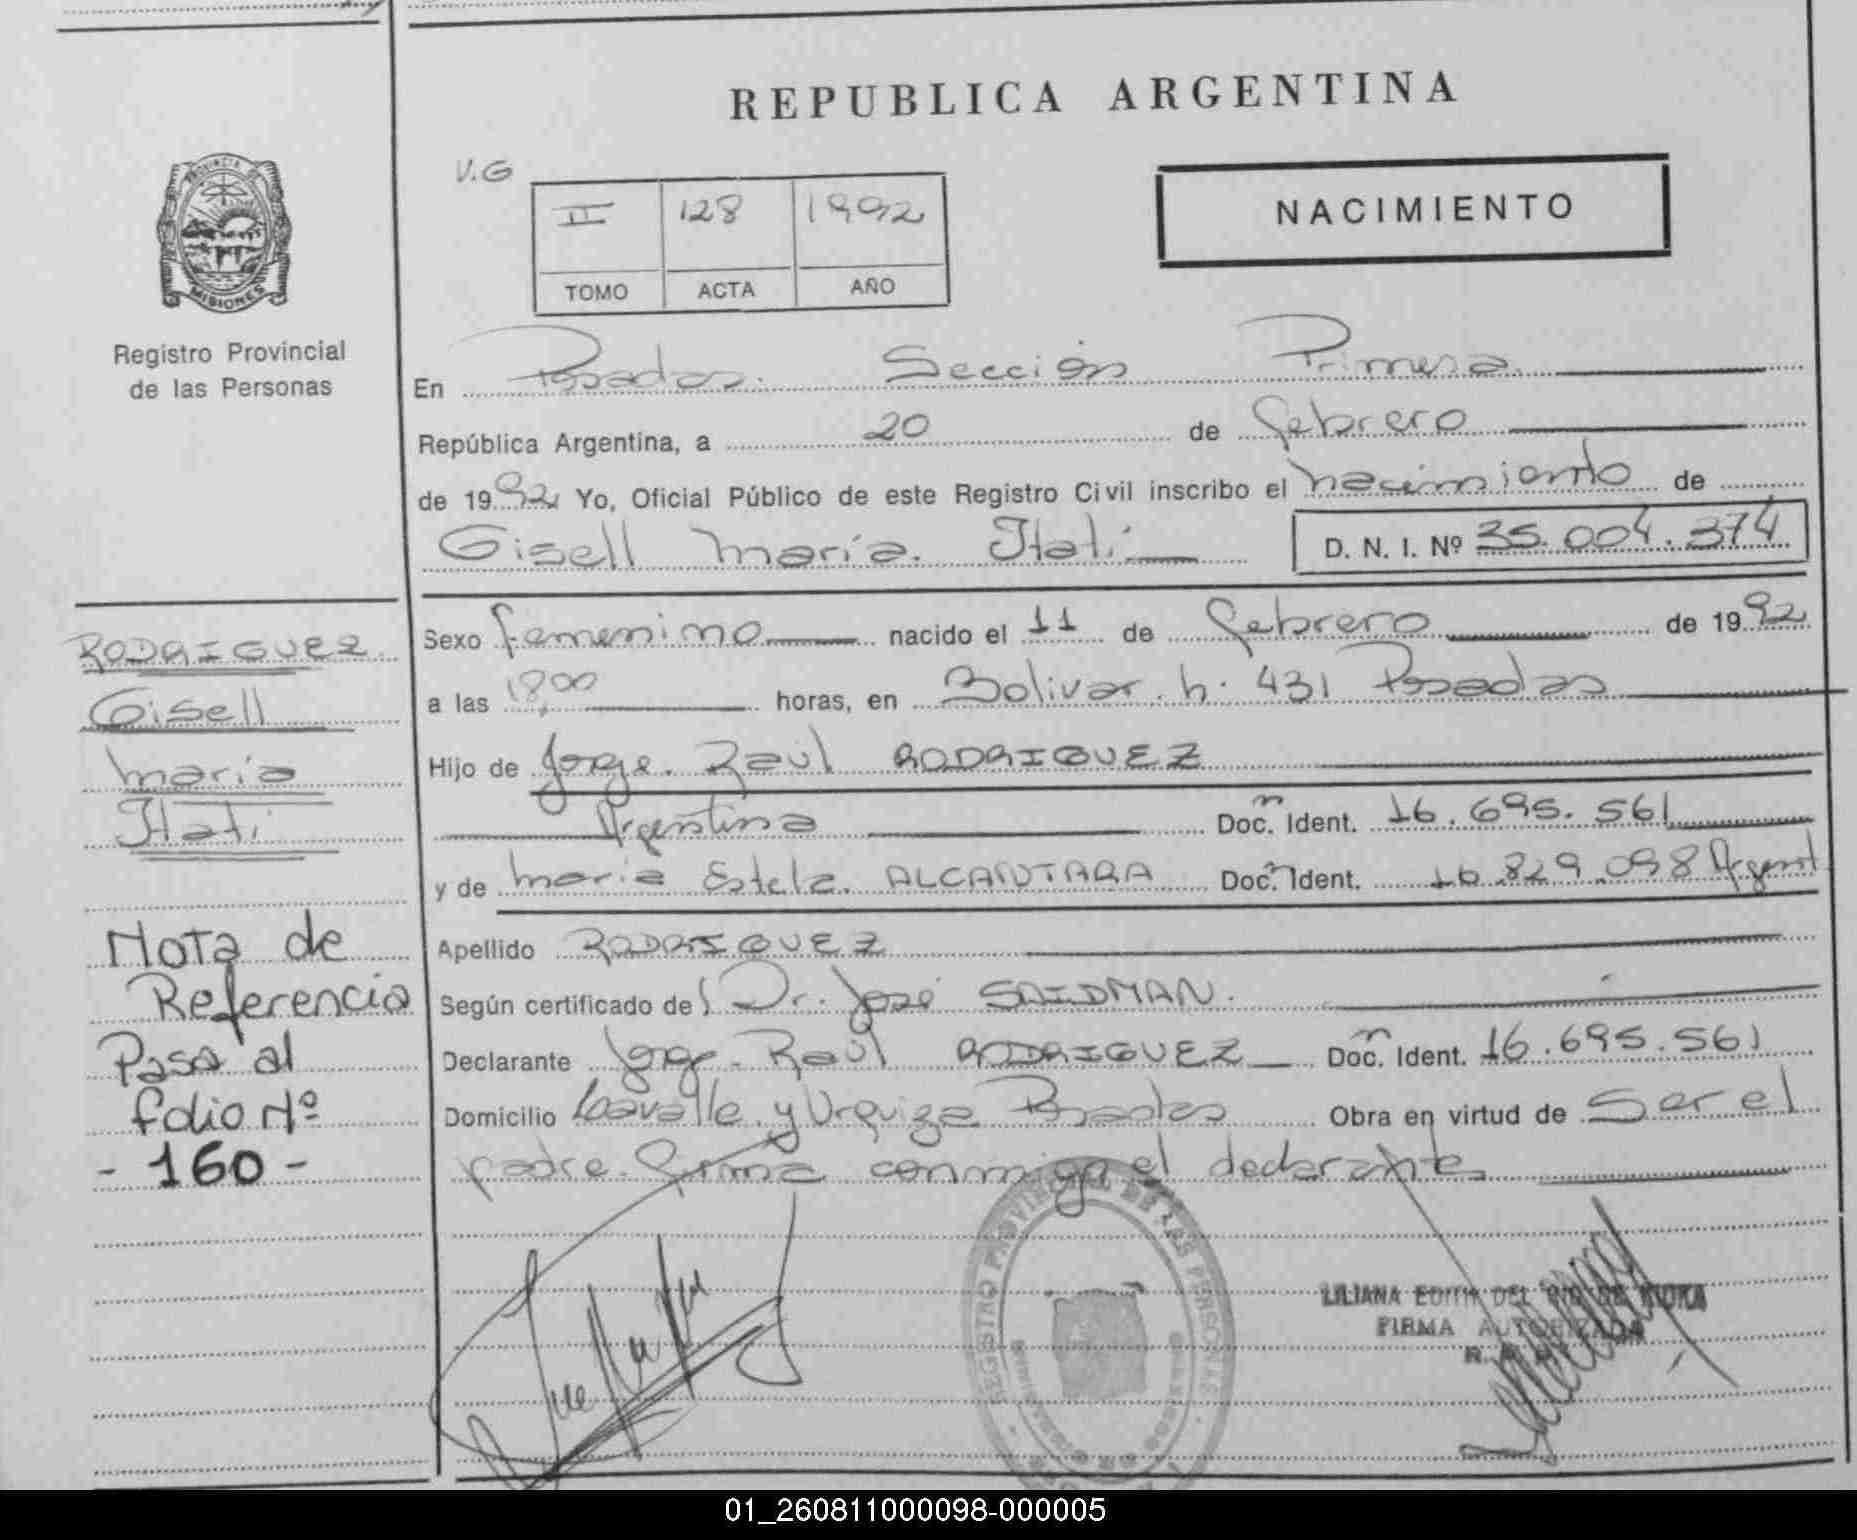 REPUBLICA ARGENTINA
V.G
II 128 1992
TOMO ACTA AÑO
NACIMIENTO
PROVINCIA DE
MISIONES
Registro Provincial
de las Personas
En Posadas. Sección Primera
República Argentina, a 20 de febrero
de 1992 Yo, Oficial Público de este Registro Civil inscribo el nacimiento de
Gisell María Itatí D. N. I. Nº 35.004.374
Sexo femenino nacido el 11 de febrero de 1992
a las 18,00 horas, en Bolivar. h. 431 Posadas
Hijo de Jorge. Raúl RODRIGUEZ
Argentina Doc. Ident. 16.695.561
y de María Estela ALCANTARA Doc. Ident. 16.829.098 Argent
Apellido RODRIGUEZ
Según certificado de Dr. José SAIDMAN.
Declarante Jorge Raúl RODRIGUEZ Doc. Ident. 16.695.561
Domicilio Lavalle y Urquiza Posadas Obra en virtud de ser el
padre. firma conmigo el declarante
RODRIGUEZ
Gisell
María
Itatí
Nota de
Referencia
Pasa al
folio Nº
- 160 -
REGISTRO PROVINCIAL DE LAS PERSONAS
LILIANA EDITH DEL RIO DE
FIRMA AUTORIZADA
01_260811000098-000005